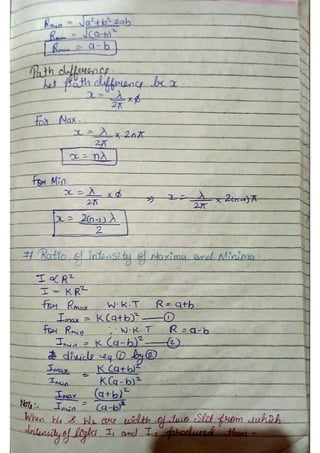 Rmin = √a²+b²-2ab
Rmin = √(a-b)²
Rmin = a-b
Path difference
Let path difference be x
x = λ/2π × ϕ
For Max.
x = λ/2π × 2nπ
x = nλ
For Min.
x = λ/2π × ϕ ⇒ x = λ/2π × 2(n-1)π
x = 2(n-1) λ/2
# Ratio of intensity of Maxima and Minima.
I ∝ R²
I = KR²
For Rmax W.K.T R = a+b
Imax = K(a+b)² — ①
For Rmin ∵ W.K.T R = a-b
Imin = K(a-b)² — ②
divide eq ① by ②
Imax/Imin = K(a+b)²/K(a-b)²
Imax/Imin = (a+b)²/(a-b)²
Note:-
When W₁ & W₂ are width of two Slit from which
intensity of light I₁ and I₂ produced then -